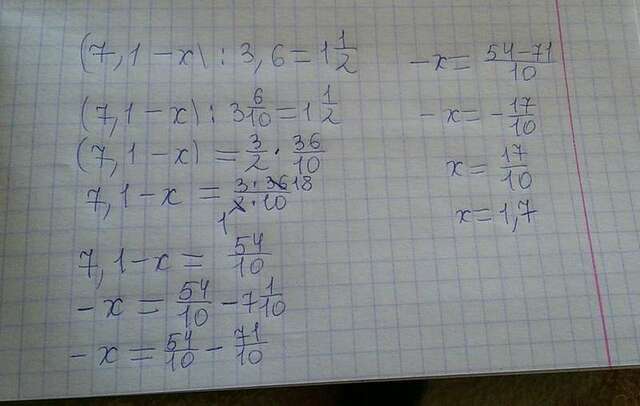 (7,1 - x) : 3,6 = 1 1/2
(7,1 - x) : 3 6/10 = 1 1/2
(7,1 - x) = 3/2 · 36/10
7,1 - x = 3 · 36 18/2 · 10
1
7,1 - x = 54/10
- x = 54/10 - 7 1/10
- x = 54/10 - 71/10
- x = 54-71/10
- x = - 17/10
x = 17/10
x = 1,7